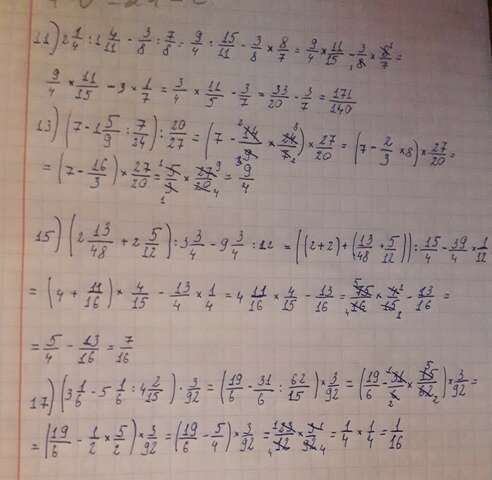 11) 2 1/4 : 1 4/11 - 3/8 : 7/8 = 9/4 : 15/11 - 3/8 × 8/7 = 9/4 × 11/15 - 3/8 × 8/7 =
9/4 × 11/15 - 3 × 1/7 = 3/4 × 11/5 - 3/7 = 33/20 - 3/7 = 171/140
13) (7 - 1 5/9 : 7/24) : 20/27 = (7 - 14/9 × 24/7) × 27/20 = (7 - 2/3 × 8) × 27/20 =
= (7 - 16/3) × 27/20 = 5/3 × 27/20 = 9/4
15) (2 13/48 + 2 5/12) : 3 3/4 - 9 3/4 : 12 = ((2+2) + (13/48 + 5/12)) : 15/4 - 39/4 × 1/12
= (4 + 11/16) × 4/15 - 13/4 × 1/4 = 4 11/16 × 4/15 - 13/16 = 75/16 × 4/15 - 13/16 =
= 5/4 - 13/16 = 7/16
17) (3 1/6 - 5 1/6 : 4 2/15) · 3/92 = (19/6 - 31/6 : 62/15) × 3/92 = (19/6 - 31/6 × 15/62) × 3/92 =
= (19/6 - 1/2 × 5/2) × 3/92 = (19/6 - 5/4) × 3/92 = 23/12 × 3/92 = 1/4 × 1/4 = 1/16